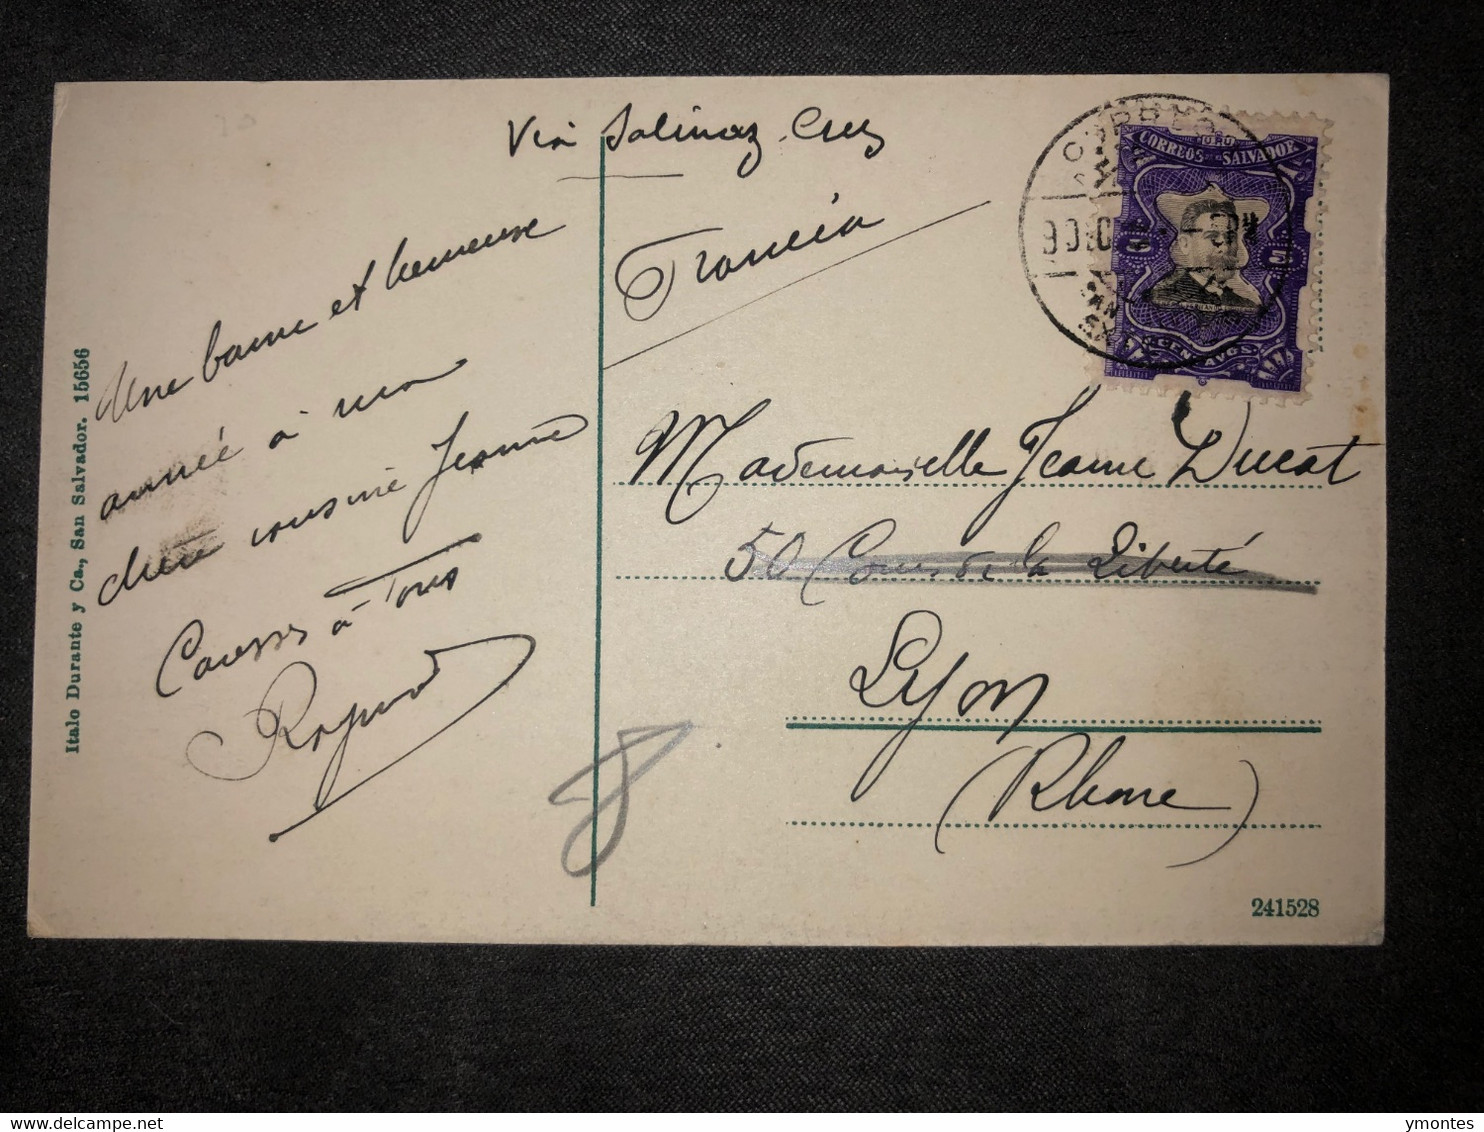 Via Salinaz-Cruz
Francia
Une bonne et heureuse
année à ma
chère cousine Jeanne
Caresses à Tous
Raymond
Mademoiselle Jeanne Ducat
50 Cours de la Liberté
Lyon
(Rhone)
Italo Durante y Ca., San Salvador. 15656
241528
CORREOS
CORREOS DE EL SALVADOR
ymontes